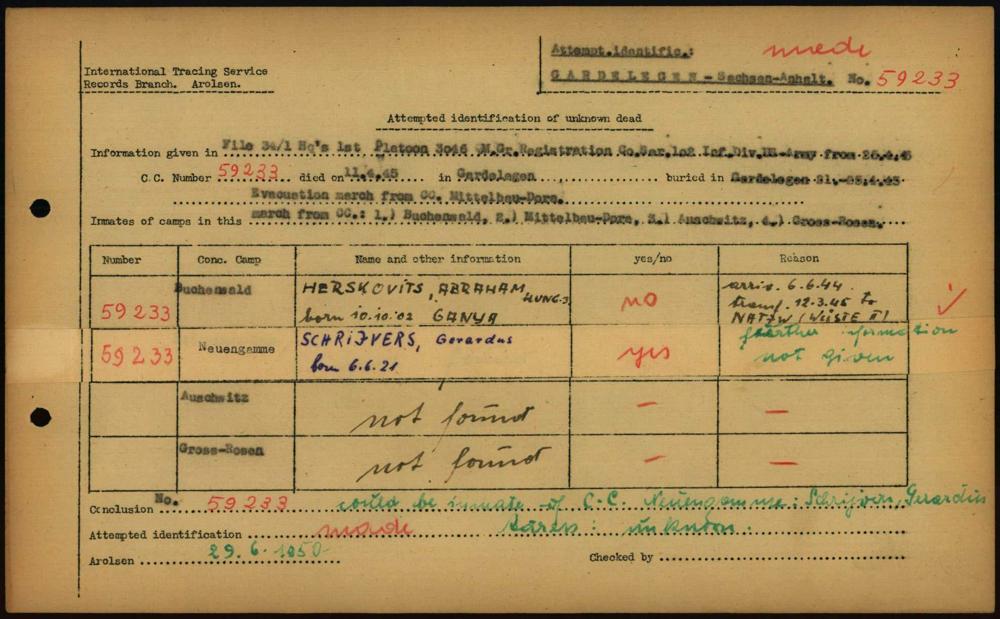 International Tracing Service
Records Branch. Arolsen.
Attempt.identific.: made
GARDELEGEN - Sachsen-Anhalt. No. 59233
Attempted identification of unknown dead
Information given in File 34/1 Hq's 1st Platoon 3046 QM.Gr.Registration Co.Gar.102 Inf.Div.IX-Army from 25.4.45
C.C. Number 59233 died on 11.4.45 in Gardelegen buried in Gardelegen 21.-25.4.45
Evacuation march from CC. Mittelbau-Dora.
Inmates of camps in this march from CC.: 1.) Buchenwald, 2.) Mittelbau-Dora, 3.) Auschwitz, 4.) Gross-Rosen.
Number Conc. Camp Name and other information yes/no Reason
59233 Buchenwald HERSKOVITS, ABRAHAM, HUNG-J. born 10.10.02 GANYA no arriv. 6.6.44. transf. 12.3.45 to NATZW (WÜSTE II)
59233 Neuengamme SCHRIJVERS, Gerardus born 6.6.21 yes further information not given
Auschwitz not found — —
Gross-Rosen not found — —
Conclusion No. 59233 could be inmate of C.C. Neuengamme: Schrijvers, Gerardus
Attempted identification made unknown.
Arolsen 29.6.1950 Checked by